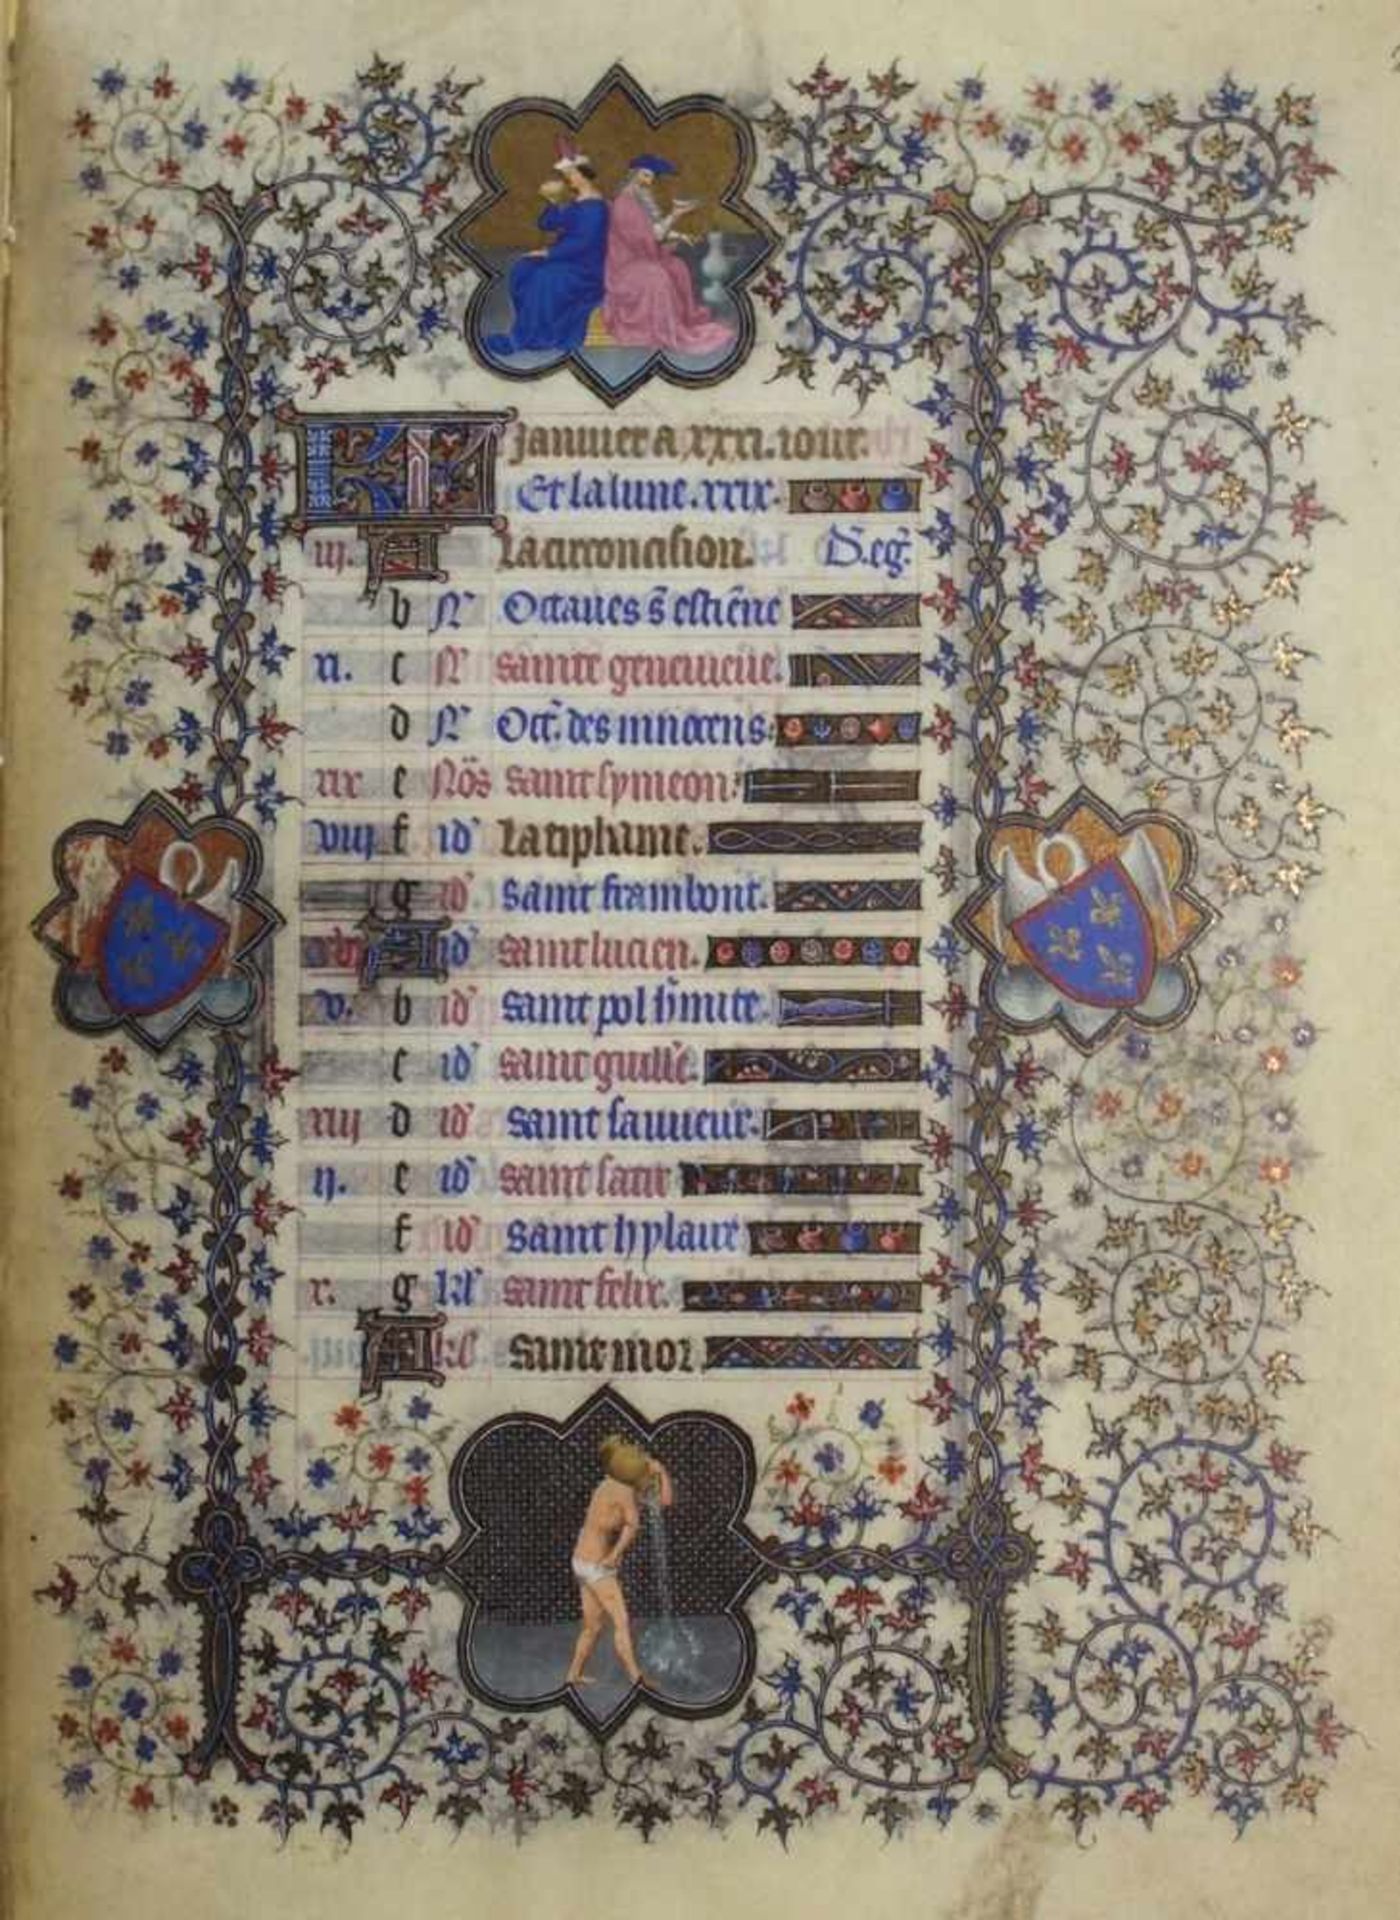 KL Januier a xxxi. iour.
Et la lune. xxix.
iij. A La circoncision. D. eg.
b N Octaues s estiene
xi. c N sainte geneuieue.
d N Oct. des innocens
xix e Nos saint symeon.
viij f id La tiphaine.
g id. saint frambout.
xvi A id saint lucien.
v. b id saint pol hmite.
c id saint guille.
xiij d id saint sauueur.
ij. e id saint satir
f id saint hylaire
x. g kl saint felix.
A kl saint mor